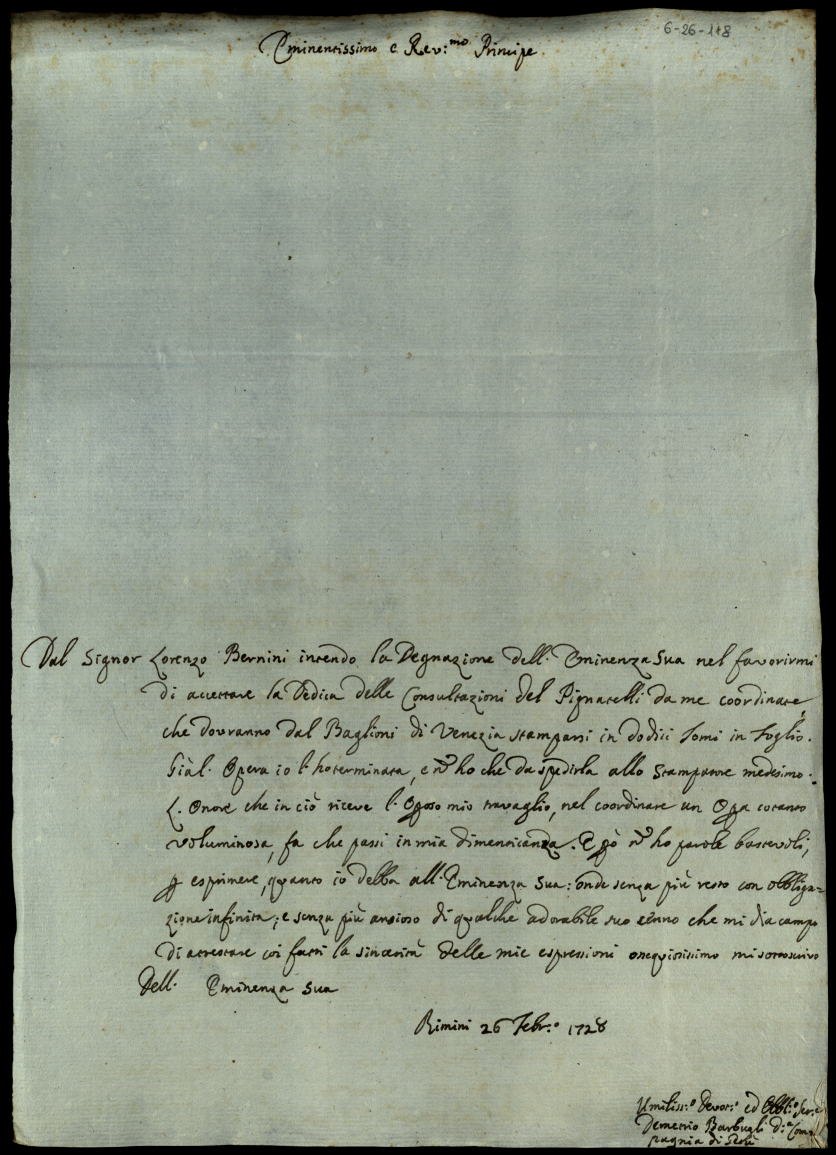 6-26-118
Eminentissimo e Rev:mo Principe
Dal Signor Lorenzo Bernini intendo la Degnazione dell' Eminenza Sua nel favorirmi
di accettare la Dedica delle Consultazioni del Pignatelli da me coordinate,
che dovranno dal Baglioni di Venezia stamparsi in dodici Tomi in foglio.
Già l' Opera io l' ho terminata, e nõ ho che da spedirla allo Stampatore medesimo.
L' Onore che in ciò riceve l' Oposo mio travaglio, nel coordinare un Opa cotanto
voluminosa, fa che passi in mia dimenticanza. E pò nõ ho parole bastevoli,
p esprimere, quanto io debba all' Eminenza Sua: onde senza più resto con obbliga=
zione infinita; e senza più ansioso di qualche adorabile suo cenno che mi dia campo
di attestare coi fatti la sincerità delle mie espressioni ossequiosissimo mi sottoscrivo
Dell' Eminenza Sua
Rimini 26 Febr:o 1728
Umiliss:o Devot:o ed Obbl:o Ser:e
Demetrio Barbugli D:a Com=
pagnia di Gesù